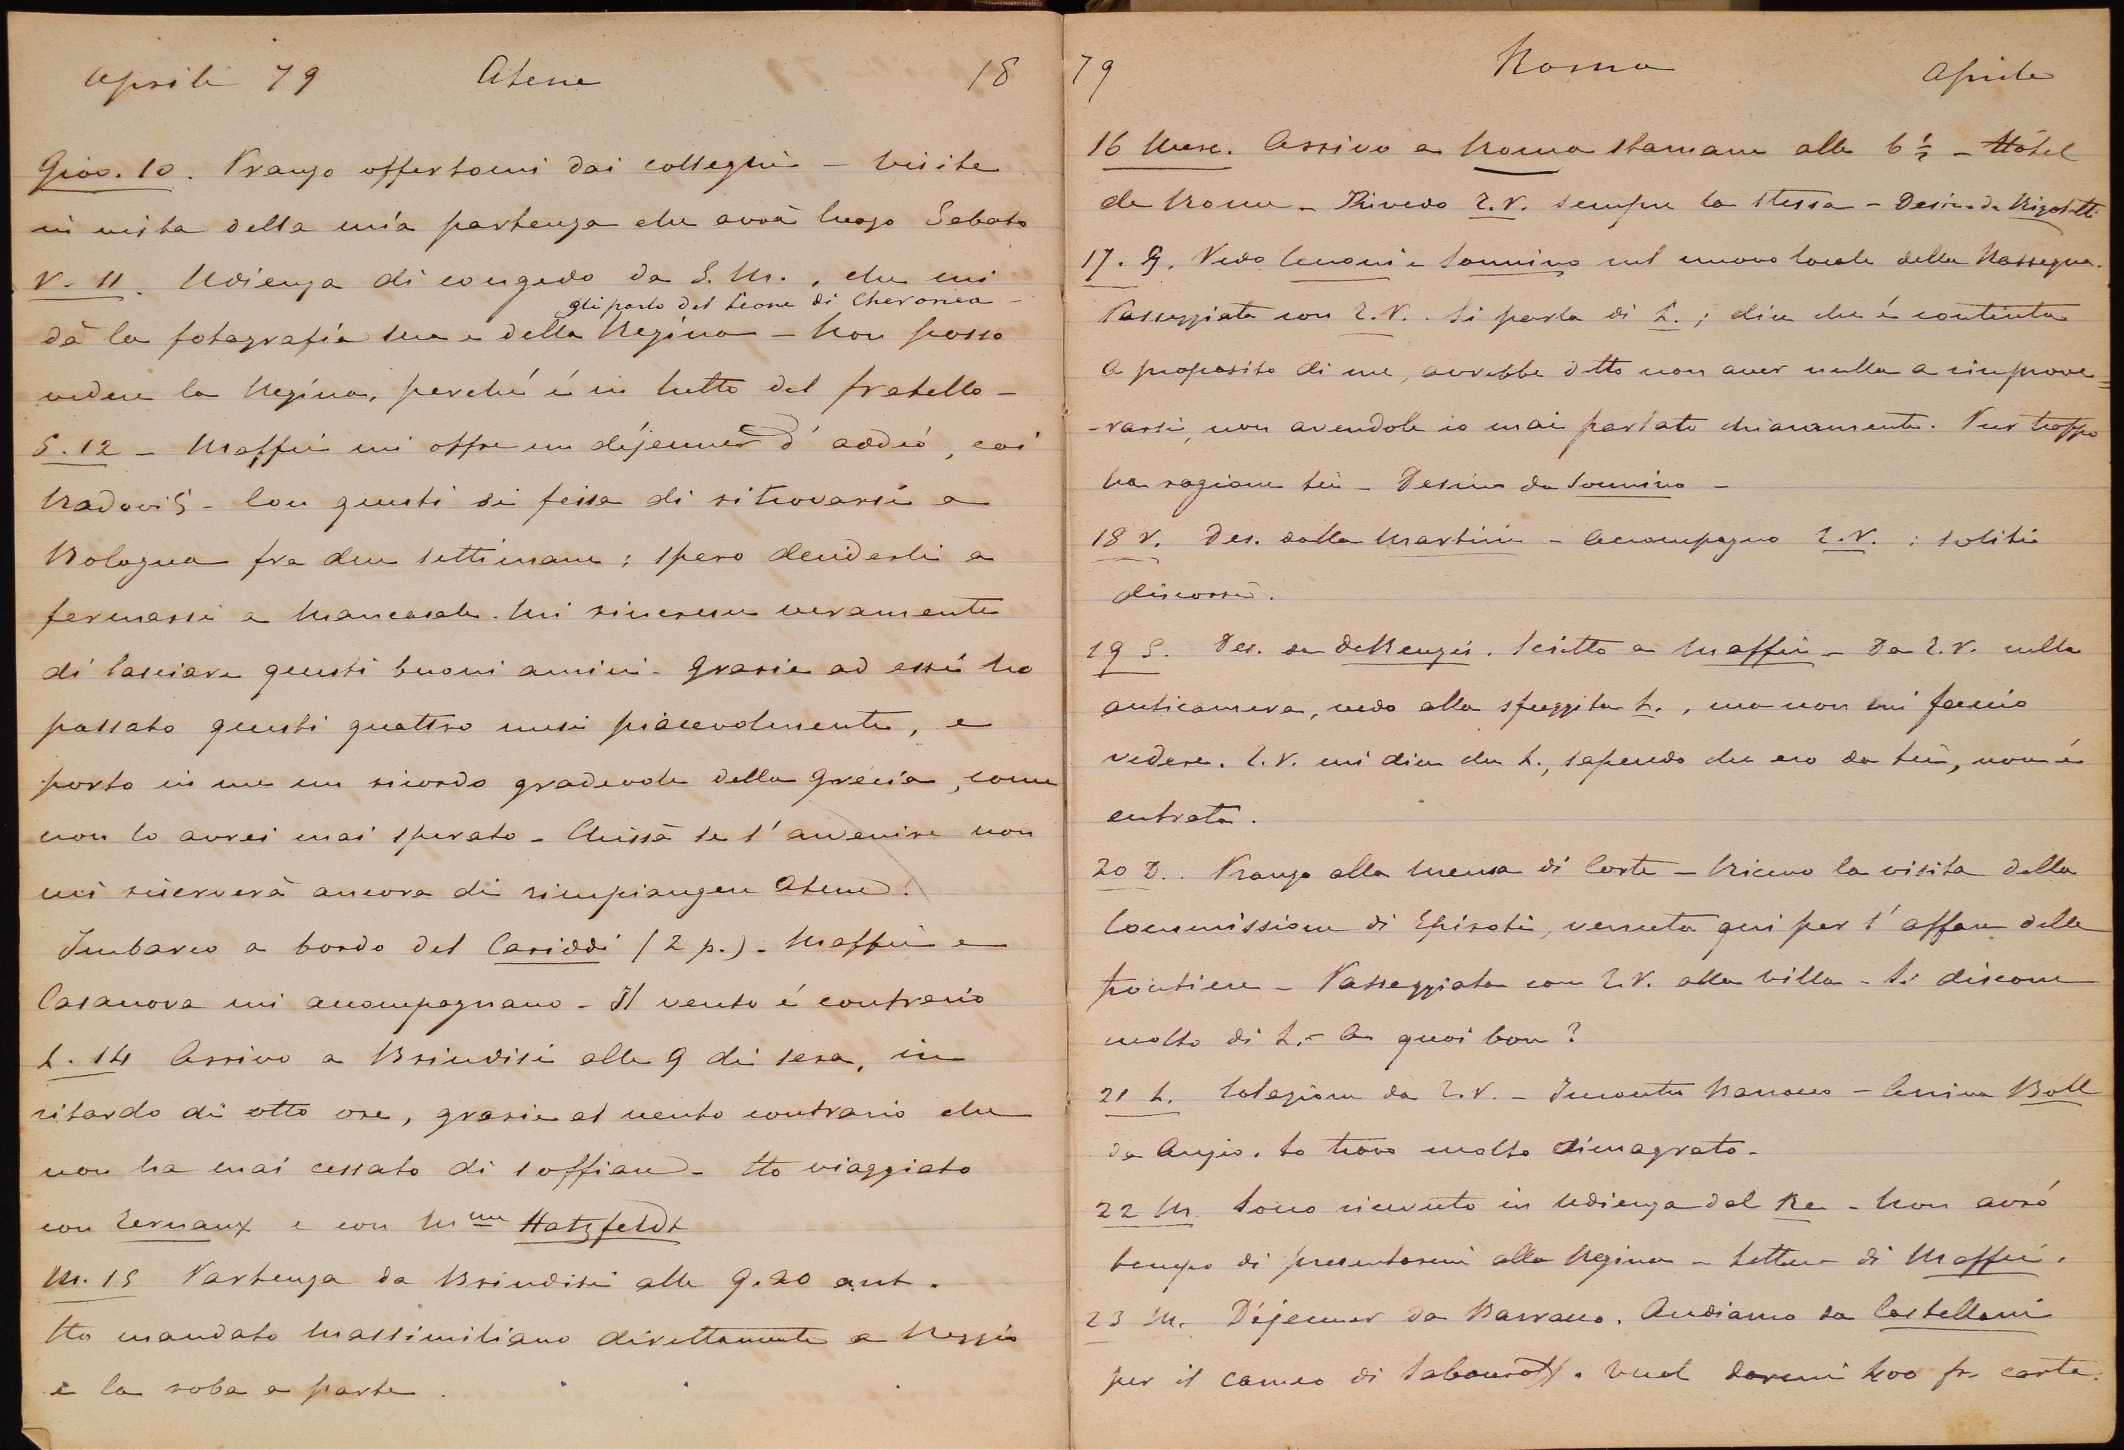 Aprile 79 Atene 18
Giov. 10. Pranzo offertomi dai colleghi – Visite
in vista della mia partenza che avrà luogo Sabato
V. 11. Udienza di congedo da S. M., che mi
gli parlo del Leone di Cheronea –
dà la fotografia sua e della Regina – Non posso
vedere la Regina, perché é in lutto del fratello –
S. 12 – Maffei mi offre un déjeuner d'addio, così
Radovis – Con questi si fissa di ritrovarsi a
Bologna fra due settimane; spero deciderli a
fermarsi a Mancasale. Mi rincresce veramente
di lasciare questi buoni amici. Grazie ad essi ho
passato questi quattro mesi piacevolmente, e
porto in me un ricordo gradevole della Grecia, come
non lo avrei mai sperato – Chissà se l'avvenire non
mi riserverà ancora di rimpiangere Atene!
Imbarco a bordo del Cariddi (2 p.). Maffei e
Casanova mi accompagnano – Il vento é contrario
L. 14 Arrivo a Brindisi alle 9 di sera, in
ritardo di otto ore, grazie al vento contrario che
non ha mai cessato di soffiare – Ho viaggiato
con Ternaux e con Mme Hatzfeldt
M. 15 Partenza da Brindisi alle 9.20 ant.
Ho mandato Massimiliano direttamente a Reggio
e la roba a parte.
79 Roma Aprile
16 Merc. Arrivo a Roma stamane alle 6 ½ – Hôtel
de Rome – Rivedo sempre la stessa – Desino da
17. G. Vedo e Sonnino nel nuovo locale della Rassegna.
Passeggiata con Si parla di L.; dice che é contenta
A proposito di me, avrebbe detto non aver nulla a rimprove=
-rarsi, non avendole io mai parlato chiaramente. Pur troppo
ha ragione lei – Desino da Sonnino –
18 V. Des. dalla Martini – Accompagno : soliti
discorsi.
19 S. Des. da deRenzis. Scritto a Maffei – Da nella
anticamera, vedo alla sfuggita L., ma non mi faccio
vedere. mi dice che L., sapendo che ero da lei, non é
entrata.
20 D. Pranzo alla Mensa di Corte – Ricevo la visita della
Commissione di Epiroti, venuta qui per l'affare delle
frontiere – Passeggiata con alla villa – Si discorre
molto di L. – A quoi bon?
21 L. Colazione da – Incontro Barracco – Arriva Boll
da Anzio. Lo trovo molto dimagrato –
22 M. Sono ricevuto in Udienza dal Re – Non avrò
tempo di presentarmi alla Regina – Lettera di Maffei.
23 M. Déjeuner da Barracco. Andiamo da Castellani
per il cameo di Sabouroff. Vuol darmi 400 fr. carta.